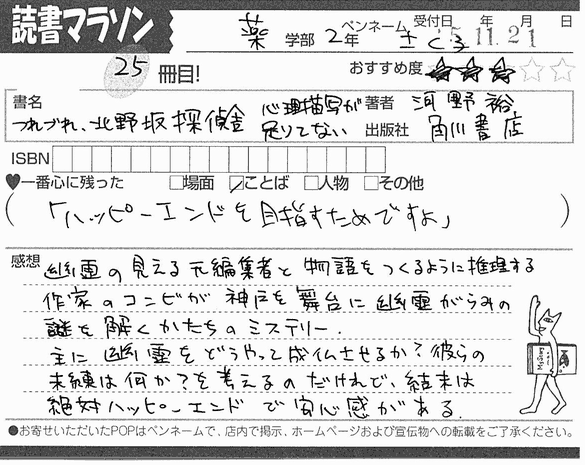 読書マラソン
薬 学部 2年 ペンネーム さくら 受付日 15年 11月 21日
25 冊目!
おすすめ度 ★★★☆☆
書名 つれづれ、北野坂探偵舎 心理描写が足りてない
著者 河野裕
出版社 角川書店
ISBN
♥一番心に残った □場面 ☑ことば □人物 □その他
(「ハッピーエンドを目指すためですよ」)
感想
幽霊の見える元編集者と物語をつくるように推理する
作家のコンビが神戸を舞台に幽霊がらみの
謎を解くかたちのミステリー.
主に幽霊をどうやって成仏させるか?彼らの
未練は何か?を考えるのだけれど、結末は
絶対ハッピーエンドで安心感がある.
●お寄せいただいたPOPはペンネームで、店内で掲示、ホームページおよび宣伝物への転載をご了承ください。